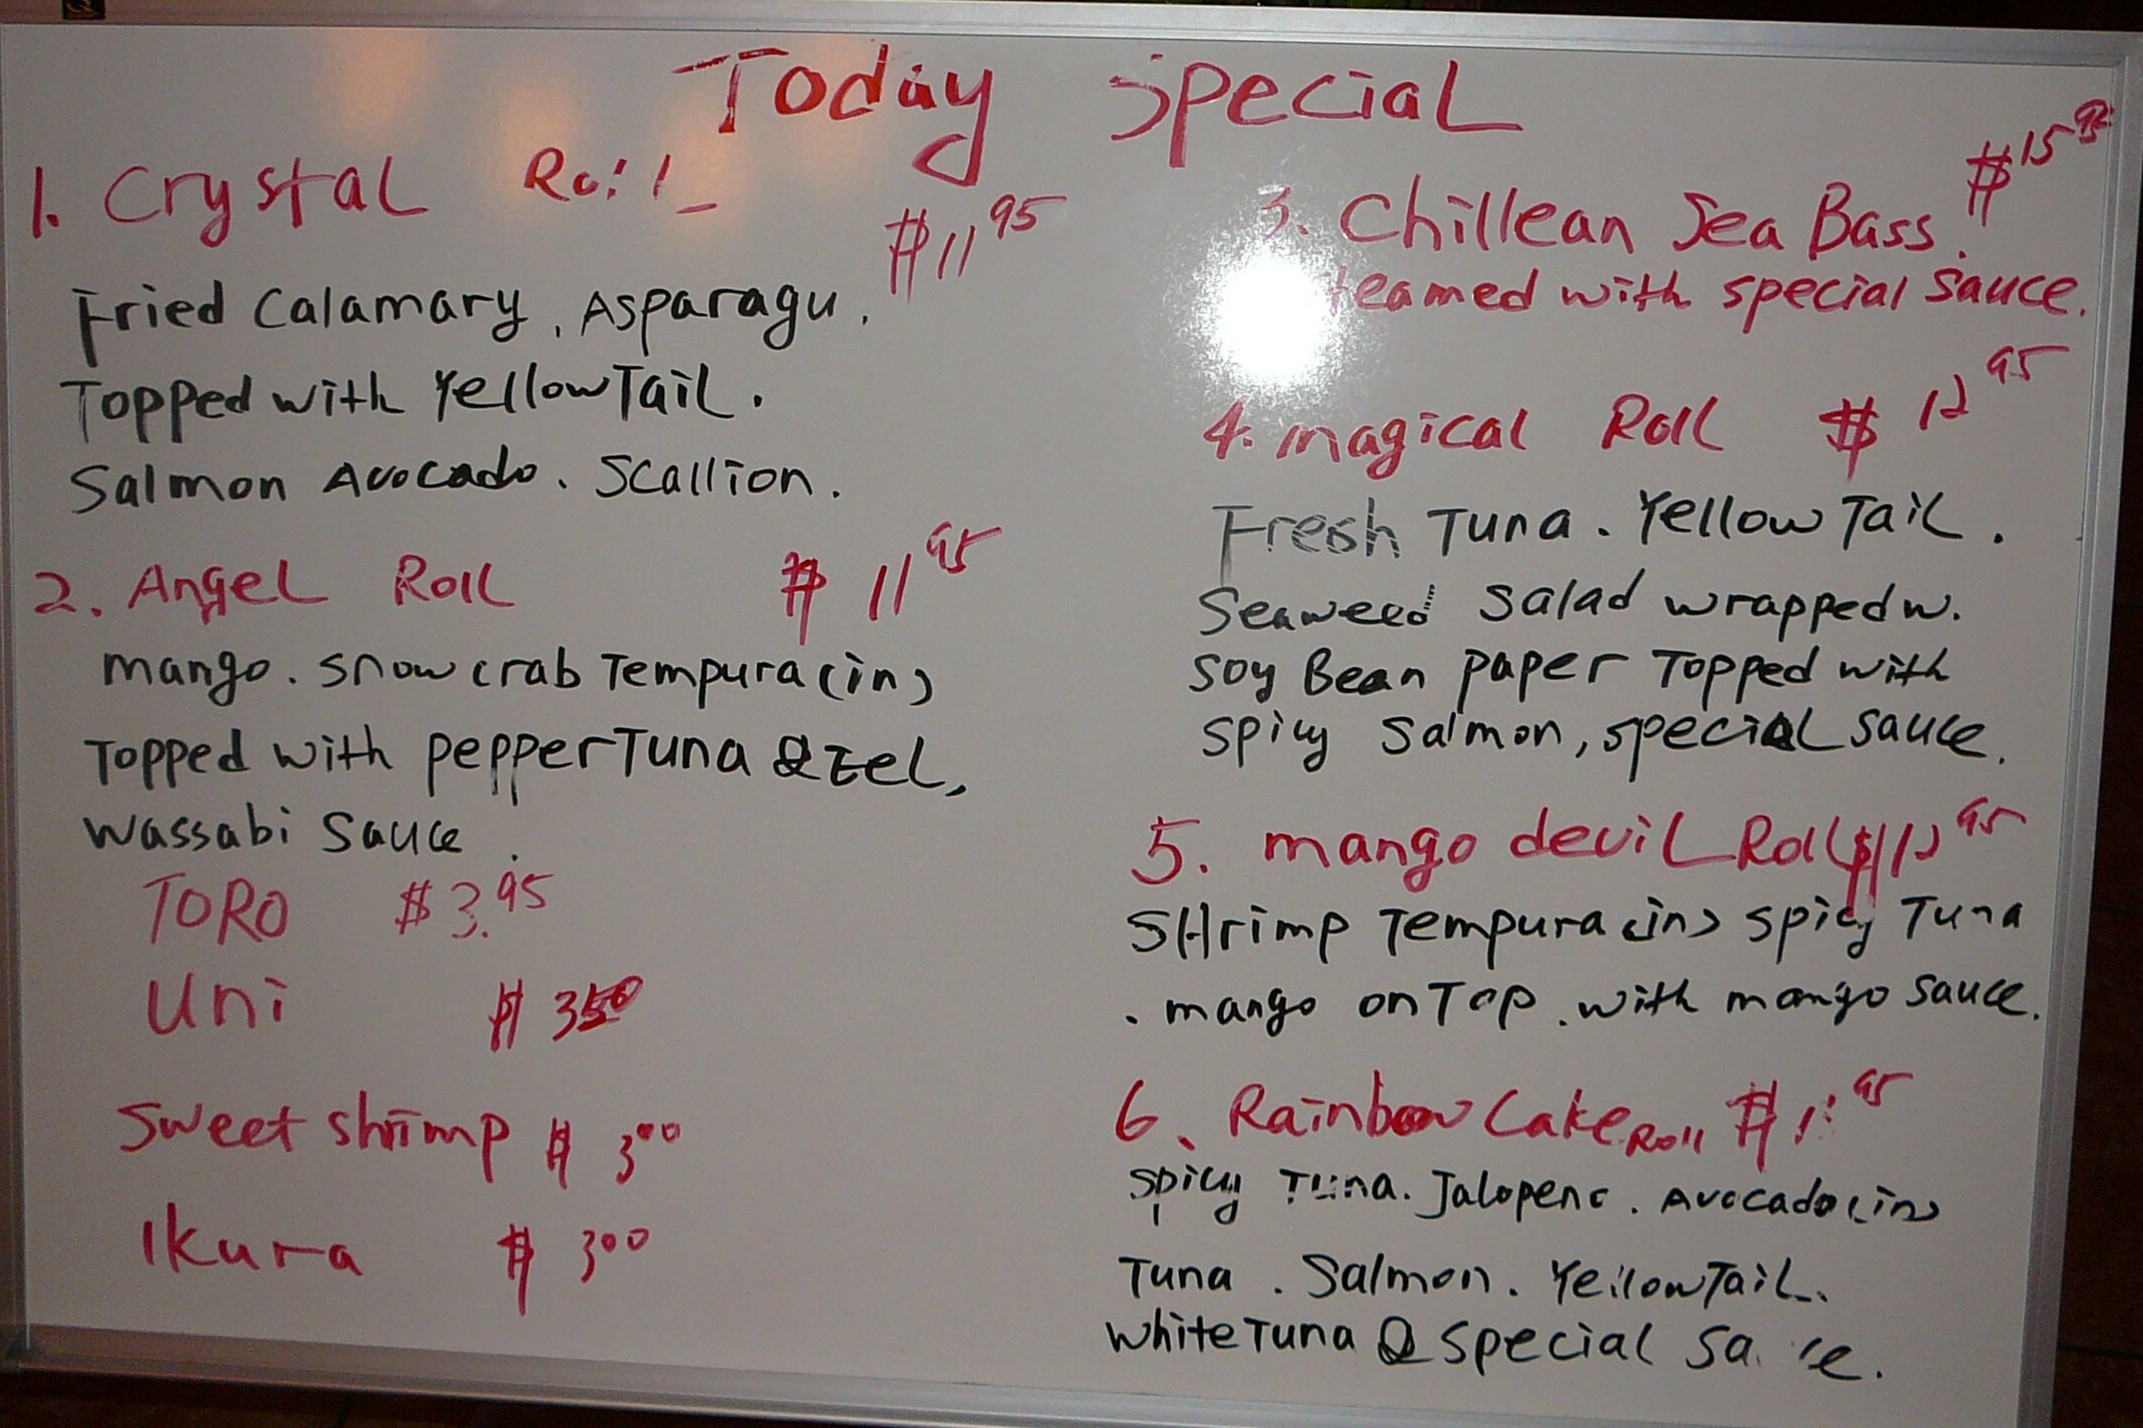 Today Special
1. Crystal Roll $11.95
Fried Calamary, Asparagu.
Topped with YellowTail.
Salmon Avocado. Scallion.
2. Angel Roll $11.95
mango. snow crab Tempura (in)
Topped with pepperTuna & Eel,
Wassabi Sauce.
TORO $3.95
Uni $350
Sweet shrimp $300
Ikura $300
3. Chillean Sea Bass. $15
teamed with special sauce.
4. magical Roll $12 95
Fresh Tuna. Yellow Tail.
Seaweed salad wrapped w.
soy Bean paper Topped with
spicy salmon, special sauce.
5. mango devil Roll $12 95
Shrimp Tempura (in) spicy Tuna
. mango on Top. with mango sauce.
6. Rainbow Cake Roll
Spicy Tuna. Jalopeno. Avocado (in)
Tuna. Salmon. YellowTail.
white Tuna & special